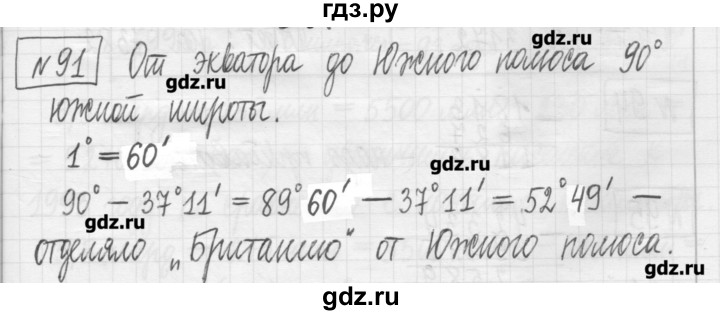 гдз.ру
№91 От экватора до Южного полюса 90°
южной широты.
1° = 60′
90° − 37°11′ = 89°60′ − 37°11′ = 52°49′ —
отделяло „Британию“ от Южного полюса.
gdz.ru
gdz.ru
gdz.ru
gdz.ru
gdz.ru
gdz.ru